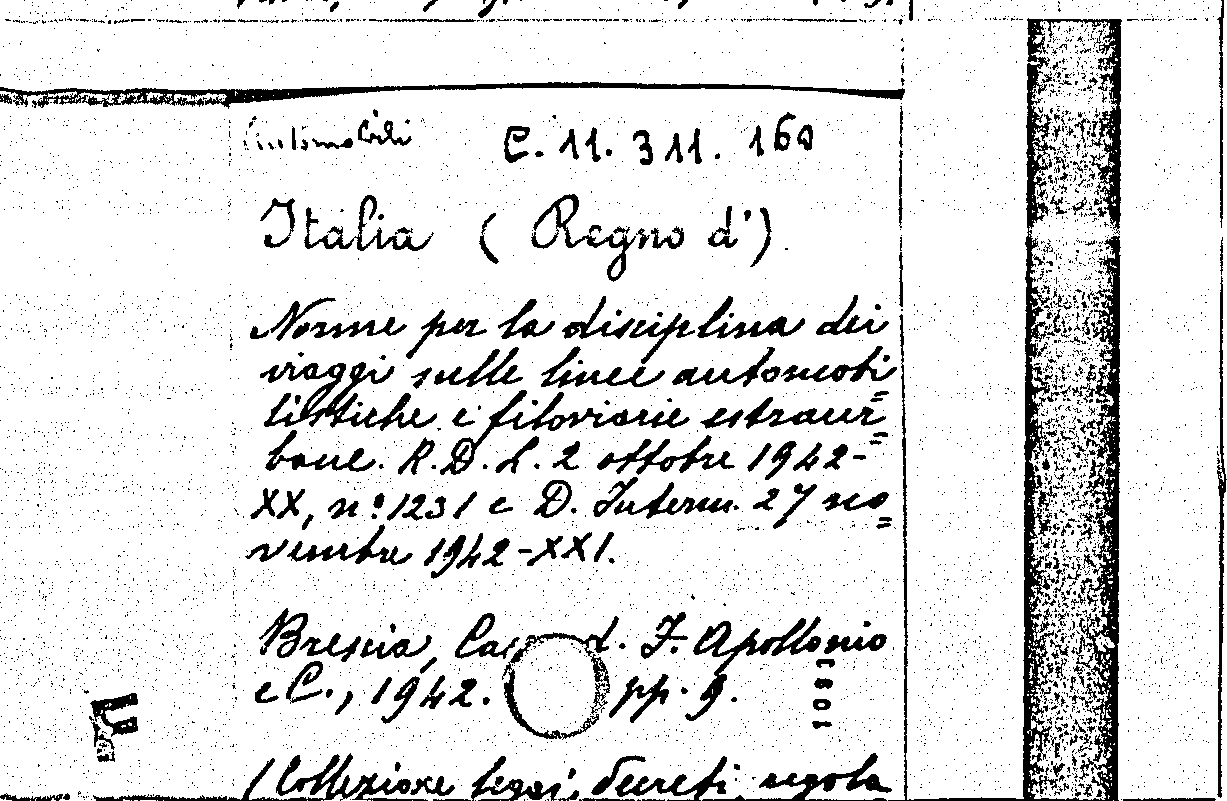 Automobili C. 11. 311. 160
Italia ( Regno d')
Norme per la disciplina dei
viaggi sulle linee automobi=
listiche e filoviarie estraur=
bane. R.D.L. 2 ottobre 1942-
XX, n° 1231 e D. Interm. 27 no=
vembre 1942-XXI.
Brescia, d. F. Apollonio
e C., 1942. pp. 9.
1081
(Collezione leggi, decreti, regola